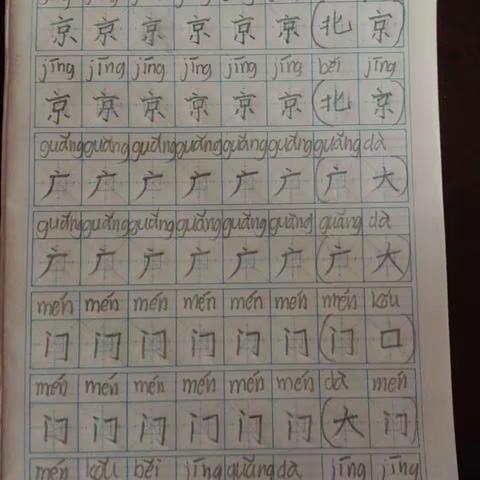 京 京 京 京 京 京 (北 京)
jīng jīng jīng jīng jīng jīng běi jīng
京 京 京 京 京 京 (北 京)
guǎng guǎng guǎng guǎng guǎng guǎng guǎng dà
广 广 广 广 广 广 (广 大)
guǎng guǎng guǎng guǎng guǎng guǎng guǎng dà
广 广 广 广 广 广 (广 大)
mén mén mén mén mén mén mén kǒu
门 门 门 门 门 门 (门 口)
mén mén mén mén mén mén dà mén
门 门 门 门 门 门 (大 门)
mén kǒu běi jīng guǎng dà jīng jīng